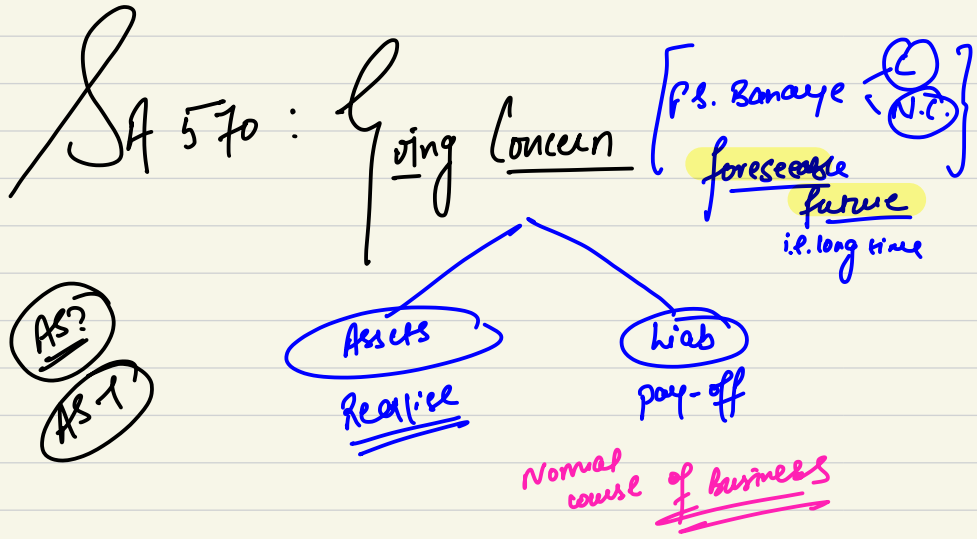 SA 570 : Going Concern
[ F.S. Banaye C
N.C. ]
foreseeable
future
i.e. long time
AS?
AS-1
Assets
Liab
Realise
pay-off
Normal
course of Business